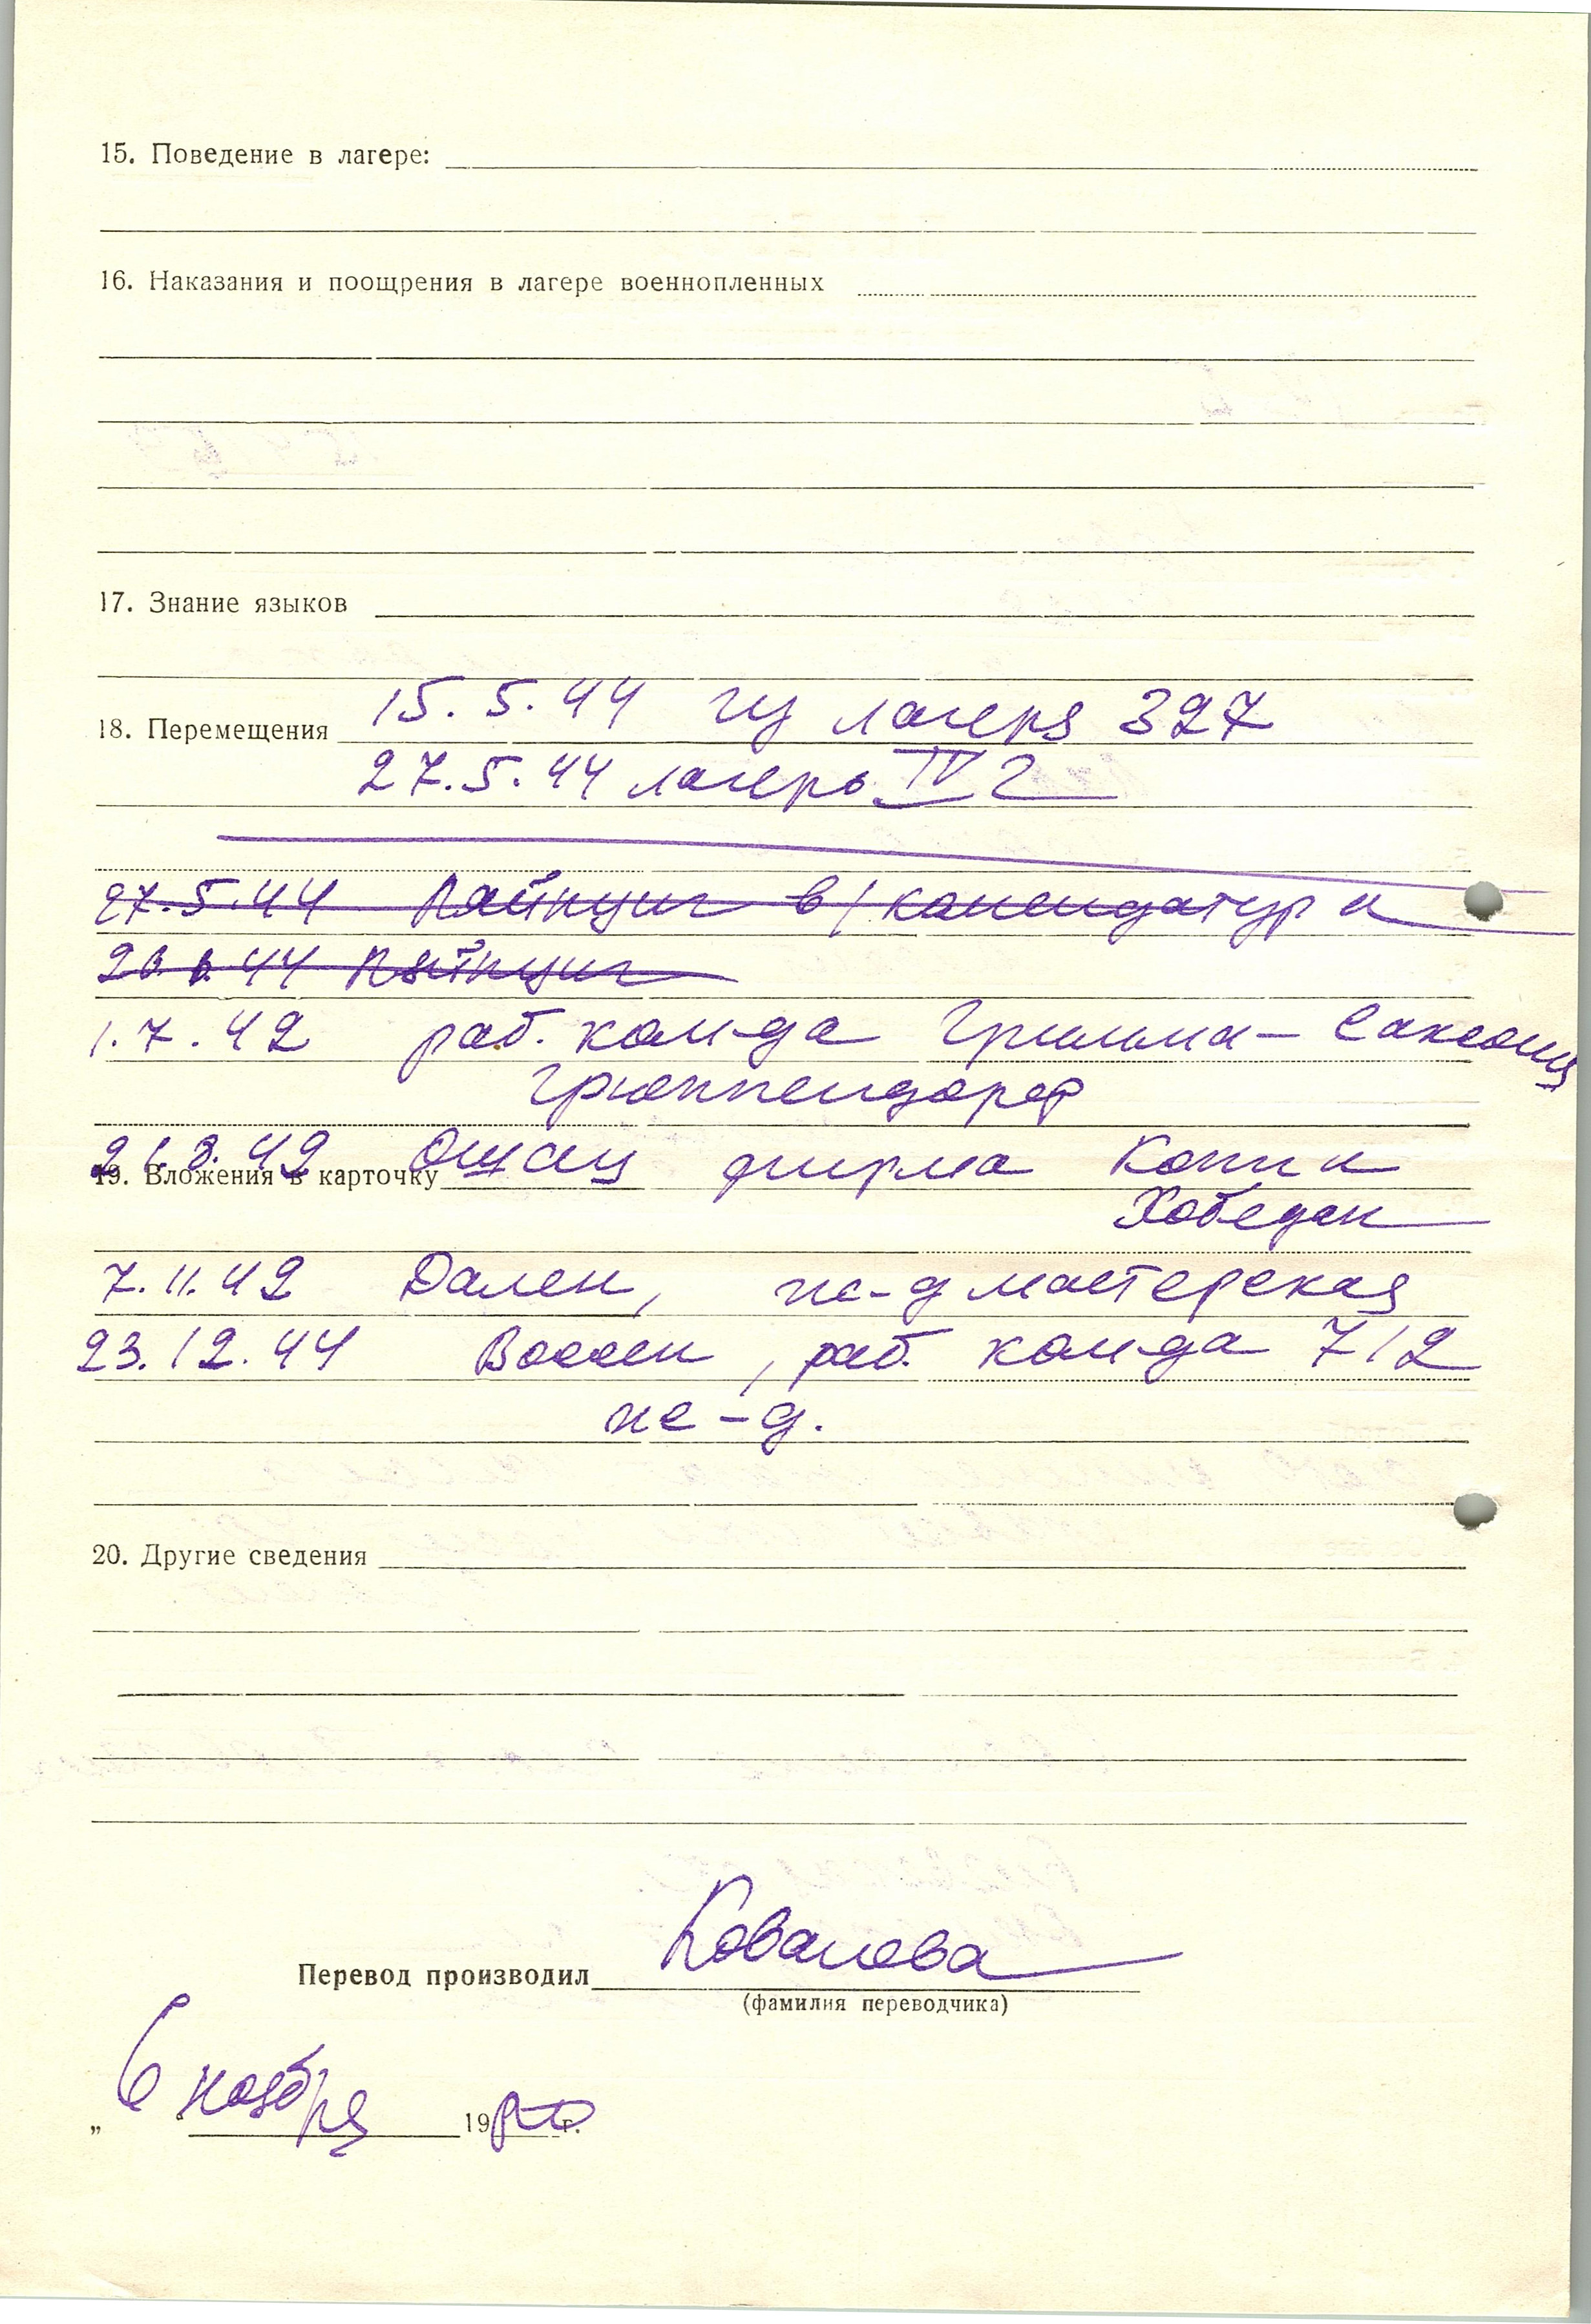 15. Поведение в лагере:
16. Наказания и поощрения в лагере военнопленных
17. Знание языков
15.5.44 из лагеря 327
18. Перемещения
27.5.44 лагерь IV Г
27.5.44 Лайпциг в/ комендатура
44 Лайпциг
1.7.42 раб. ком-да Гримма – Саксония
Грюппендорф
21.8.42 Ошац фирма Копп и
19. Вложения в карточку
7.11.42 Дален, ж-д мастерская
23.12.44 раб. ком-да 712
ж-д.
20. Другие сведения
Перевод производил Ковалева
(фамилия переводчика)
„ 6 ноября 19 г.